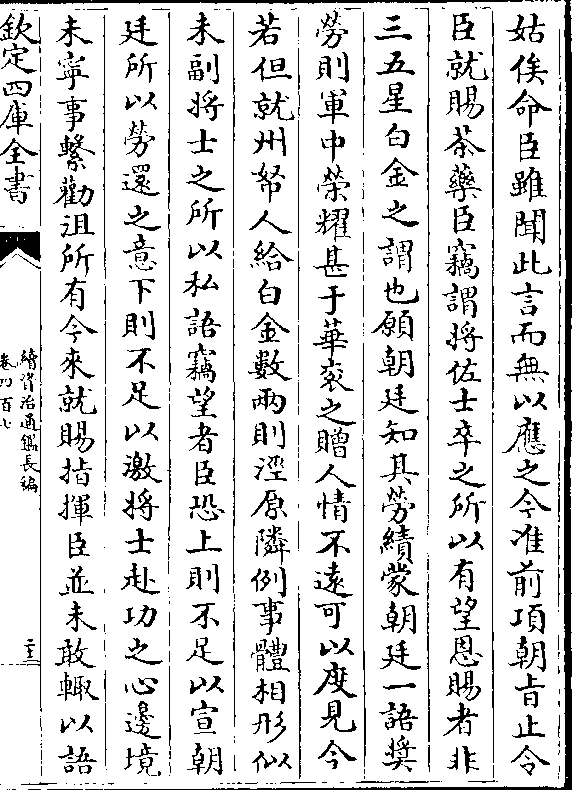 姑俟命臣雖聞此言而無以應之今准前項朝㫖止令
臣就賜茶藥臣竊謂將佐士卒之所以有望恩賜者非
三五星白金之謂也願朝廷知其勞績蒙朝廷一語奨
勞則軍中榮耀甚于華衮之贈人情不逺可以度見今
若但就州帑人給白金數兩則涇原隣例事體相形似
未副將士之所以私語竊望者臣恐上則不足以宣朝
廷所以勞還之意下則不足以激將士赴功之心邊境
未寧事繫勸沮所有今來就賜指揮臣並未敢輙以語
欽定四庫全書
續資治通鑑長編
卷四百七